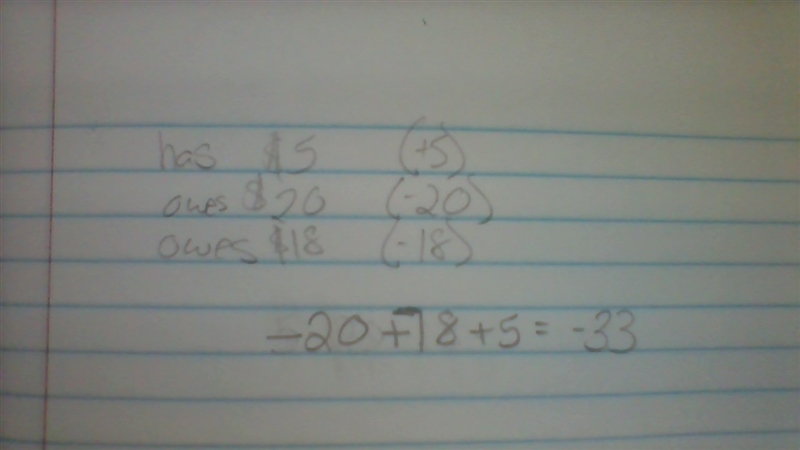 has $5 (+5)
owes $20 (-20)
owes $18 (-18)
-20+-18+5=-33